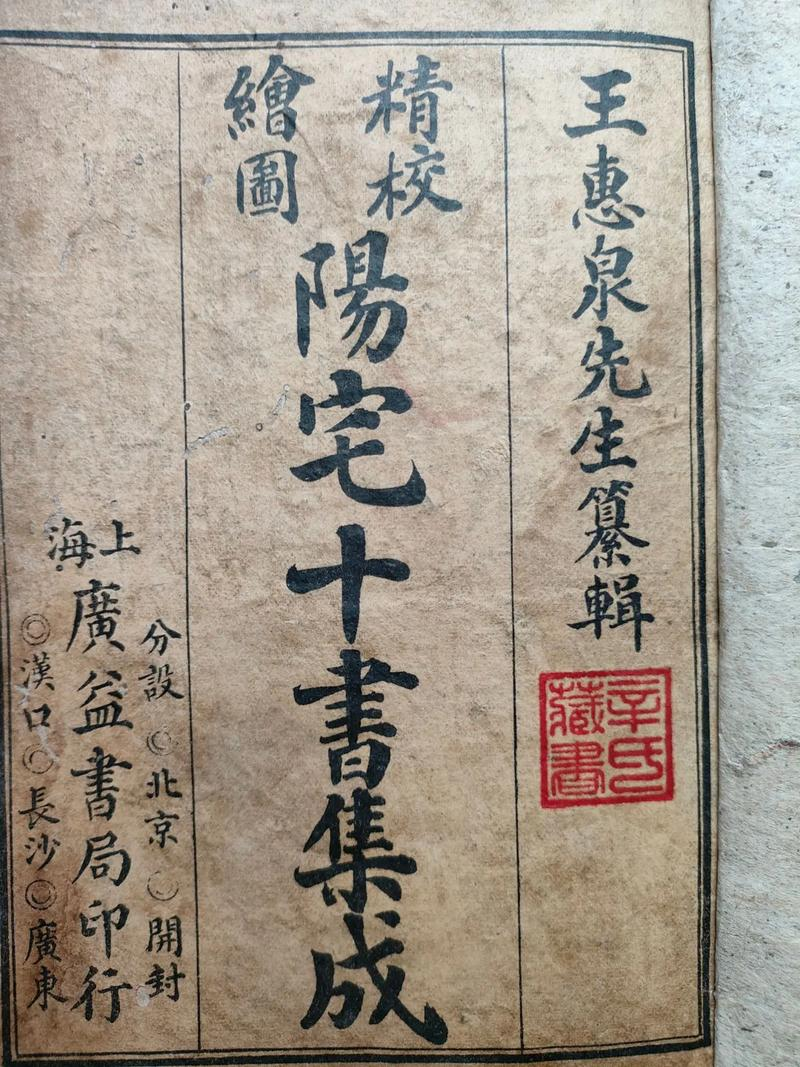 王惠泉先生纂輯
辛氏
藏書
精校
繪圖
陽宅十書集成
分設◎北京◎開封
上海
廣益書局印行
◎漢口◎長沙◎廣東